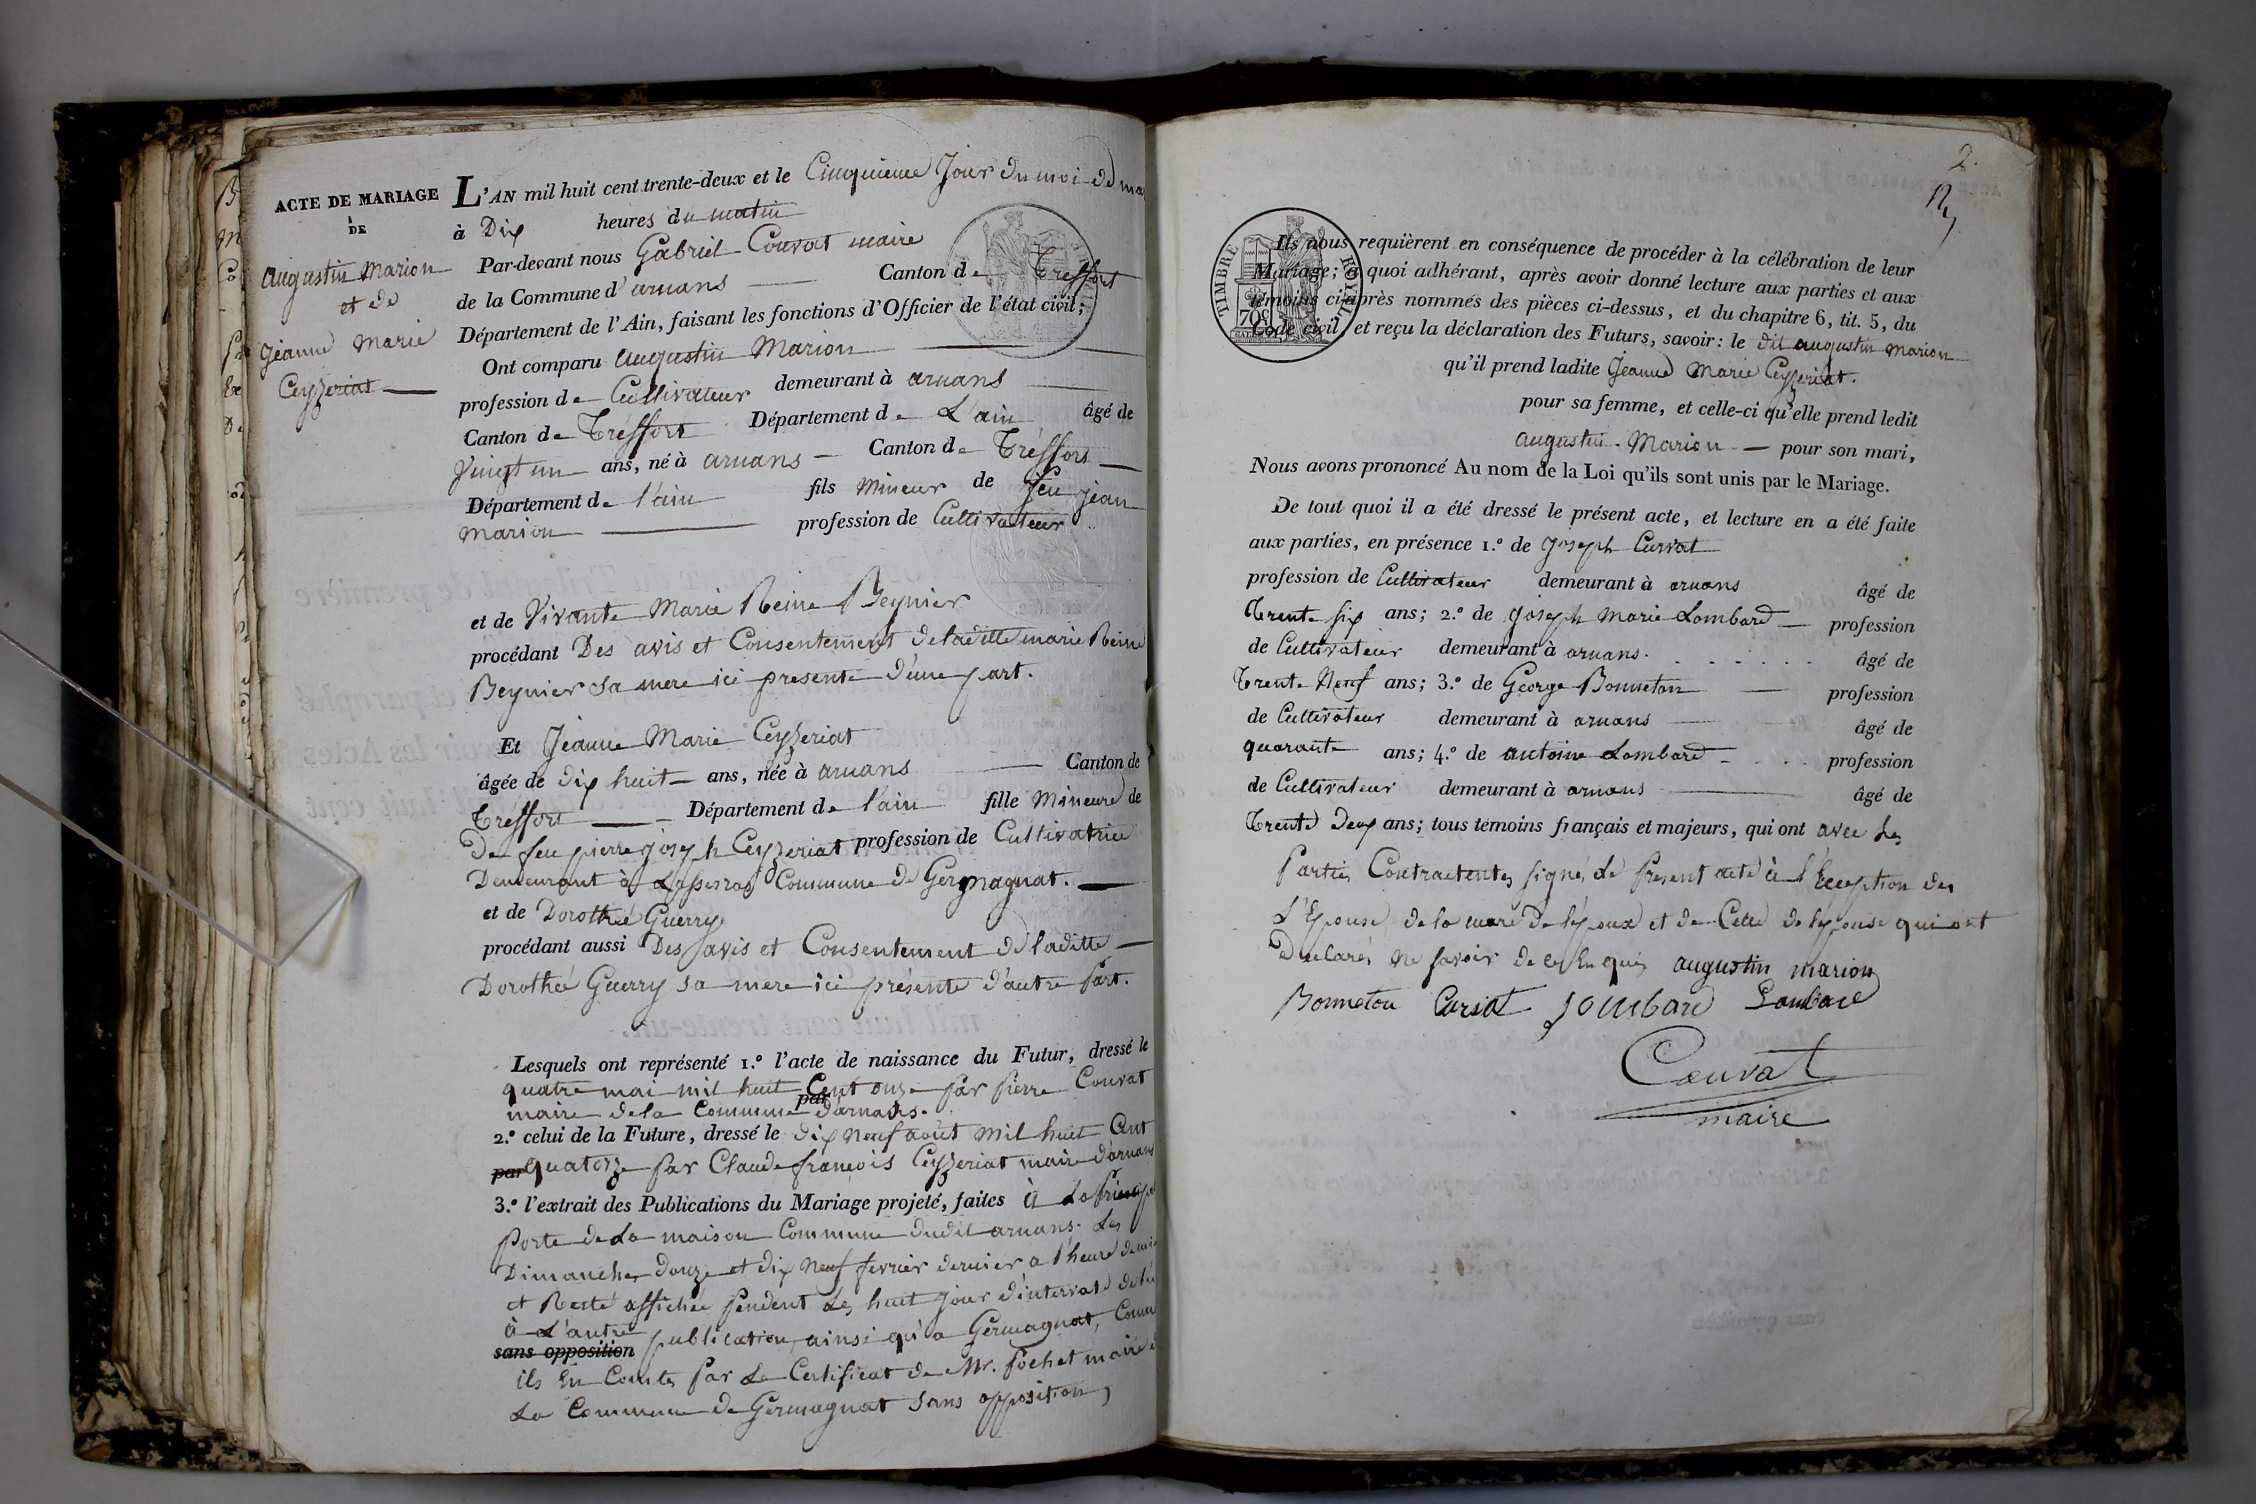 ACTE DE MARIAGE
1
DE
augustin Marion
et de
Jeanne Marie
Ceyzeriat
L'AN mil huit cent trente-deux et le Cinquieme Jour du moi de
à Dix heures du matin
Par-devant nous Gabriel Couvat maire
de la Commune d'arnans Canton de Treffort
Département de l'Ain, faisant les fonctions d'Officier de l'état civil;
Ont comparu augustin Marion
profession de Cultivateur demeurant à arnans
Canton de Tréffort Département de L'ain âgé de
Vingt un ans, né à arnans Canton de Tréffort
Département de l'ain fils Mineur de feu jean
Marion profession de Cultivateur
et de Vivante Marie Reine Beynier
procédant Des avis et Consentement de laditte marie Reine
Beynier sa mere ici presente d'une part.
Et Jeanne Marie Ceyzeriat
âgée de dix huit ans, née à arnans Canton de
Tréffort Département de l'ain fille Mineure de
De feu pierre joseph Ceyzeriat profession de Cultivatrice
Demeurant à Commune de Germagnat.
et de Dorothée Guerry
procédant aussi Des avis et Consentement de laditte
Dorothée Guerry sa mere ici présente d'autre part.
Lesquels ont représenté 1.º l'acte de naissance du Futur, dressé le
quatre mai mil huit Cent onze par pierre Couvat
par
maire de la Commune d'arnans.
2.º celui de la Future, dressé le dix neuf août mil huit Cent
par quatorze par Claude françois Ceyzeriat maire d'arnans
3.º l'extrait des Publications du Mariage projeté, faites à La
porte de La maison Commune dudit arnans. Les
Dimanches douze et dix Neuf fevrier dernier a l'heure de
et Resté affichée pendent Les huit jour d'interval de
à L'autre
sans opposition publication, ainsi qu'a Germagnat,
ils En Conste par Le Certificat de Mr. pochet maire
La Commune de Germagnat sans opposition,
2.
TIMBRE ROYAL
70c
Ils nous requièrent en conséquence de procéder à la célébration de leur
Mariage; à quoi adhérant, après avoir donné lecture aux parties et aux
témoins ci-après nommés des pièces ci-dessus, et du chapitre 6, tit. 5, du
Code civil, et reçu la déclaration des Futurs, savoir: le dit augustin Marion
qu'il prend ladite Jeanne Marie Ceyzeriat.
pour sa femme, et celle-ci qu'elle prend ledit
augustin Marion pour son mari,
Nous avons prononcé Au nom de la Loi qu'ils sont unis par le Mariage.
De tout quoi il a été dressé le présent acte, et lecture en a été faite
aux parties, en présence 1.º de Joseph Curvat
profession de Cultivateur demeurant à arnans âgé de
Trente six ans; 2.º de Joseph Marie Lombard profession
de Cultivateur demeurant à arnans. âgé de
Trente Neuf ans; 3.º de George Bonneton profession
de Cultivateur demeurant à arnans âgé de
quarante ans; 4.º de antoine Lombard profession
de Cultivateur demeurant à arnans âgé de
Trente Deux ans; tous témoins français et majeurs, qui ont avec Les
parties Contractentes signé Le présent acte à l'Éception des
L'Epouse de la mere De lépoux et de Celle de lépouse qui ont
Declarés Ne savoir de ce Enquis augustin marion
Bonneton Curvat Lombard Lombard
Couvat
maire